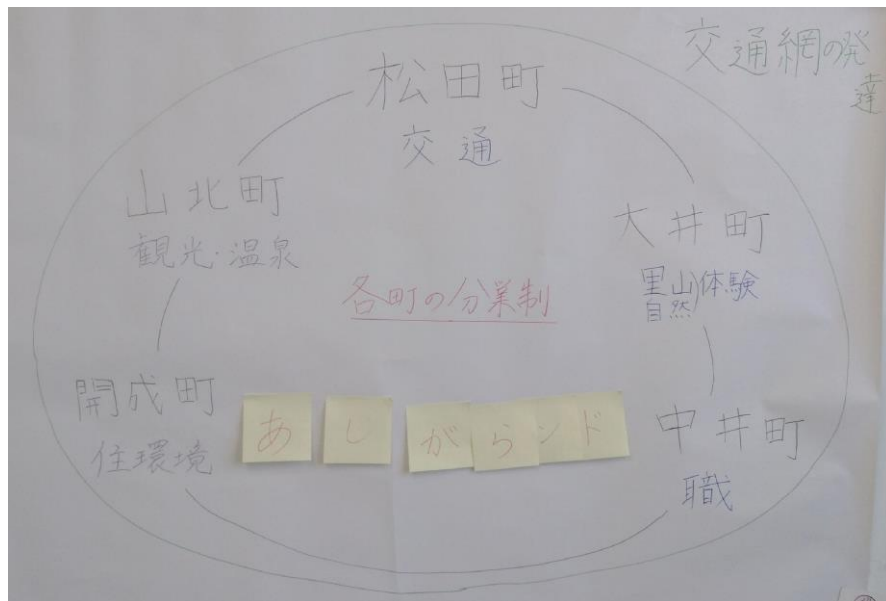 交通網の発達
松田町
交通
山北町
観光・温泉
大井町
里山
自然)体験
各町の分業制
開成町
住環境
あしがらンド
中井町
職